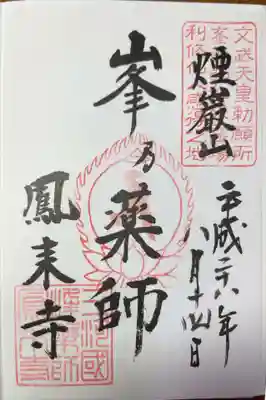 文武天皇勅願所
煙巖山
峯乃薬師
鳳来寺
平成二六年
八月十四日